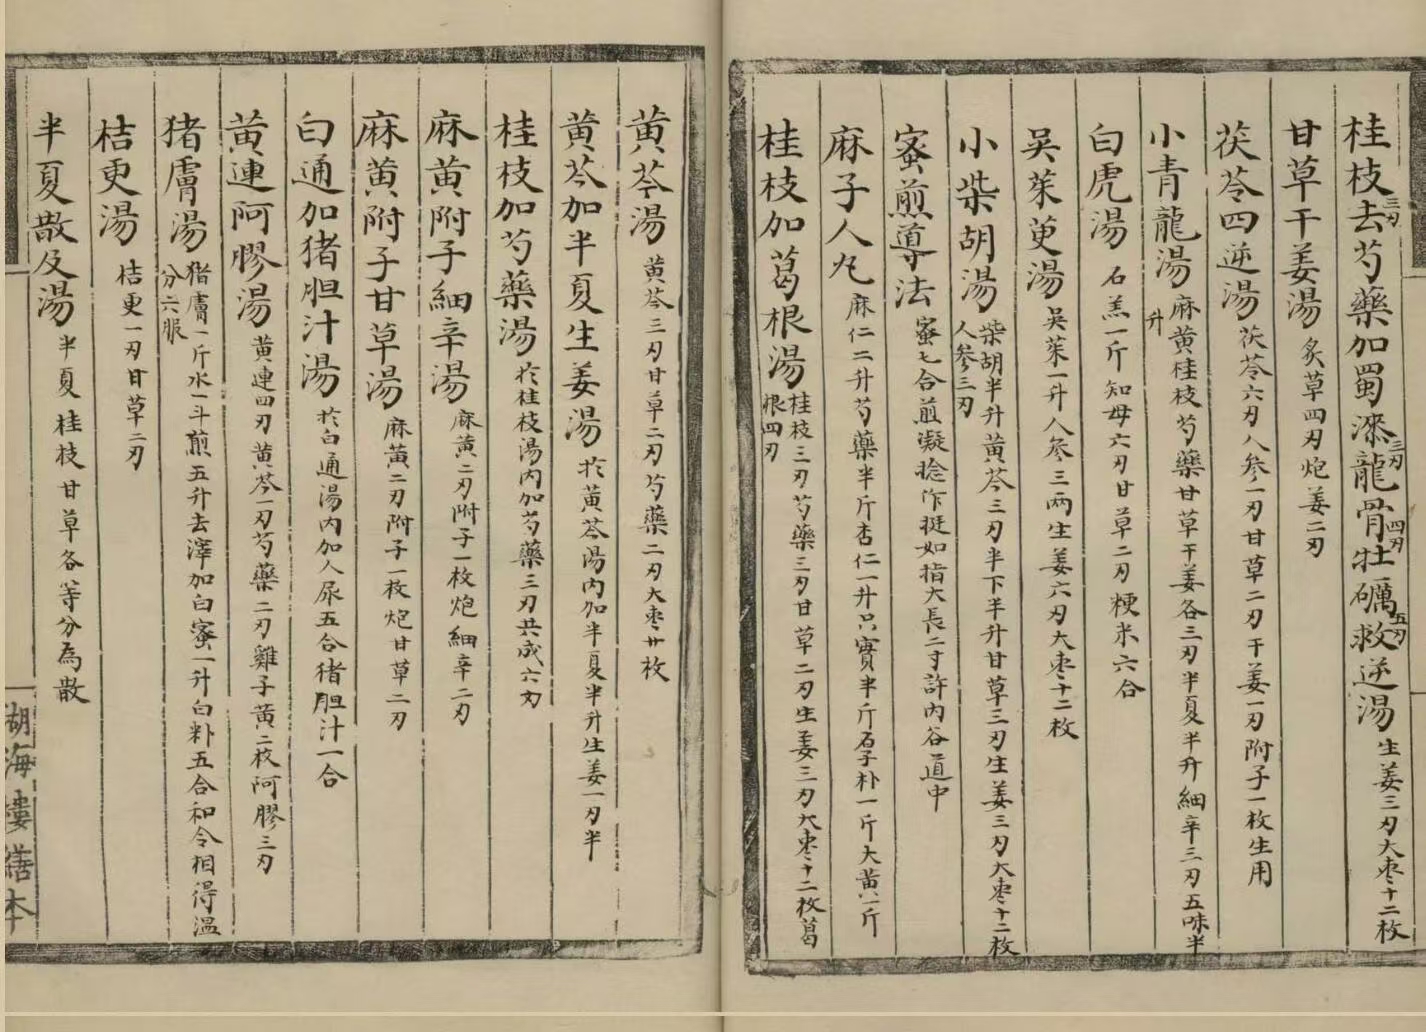 桂枝去芍藥加蜀漆龍骨牡礪救逆湯 生姜三刃大枣十二枚
三刃
三刃
四刃
五刃
甘草干姜湯 炙草四刃炮姜二刃
茯苓四逆湯 茯苓六刃人参一刃甘草二刃干姜一刃附子一枚生用
小青龍湯 麻黄桂枝芍藥甘草干姜各三刃半夏半升細辛三刃五味半
升
白虎湯 石羔一斤知母六刃甘草二刃粳米六合
吳茱萸湯 吳茱一升人参三兩生姜六刃大枣十二枚
小柴胡湯 柴胡半升黄芩三刃半下半升甘草三刃生姜三刃大枣十二枚
人參三刃
蜜煎導法 蜜七合煎凝捻作挺如指大長二寸許内谷道中
麻子人丸 麻仁二升芍藥半斤杏仁一升只實半斤石子朴一斤大黄一斤
桂枝加葛根湯 桂枝三刃芍藥三刃甘草二刃生姜三刃大枣十二枚葛
根四刃
黄芩湯 黄芩三刃甘草二刃芍藥二刃大枣廿枚
黄芩加半夏生姜湯 於黄芩湯内加半夏半升生姜一刃半
桂枝加芍藥湯 於桂枝湯内加芍藥三刃共成六刃
麻黄附子細辛湯 麻黄二刃附子一枚炮細辛二刃
麻黄附子甘草湯 麻黄二刃附子一枚炮甘草二刃
白通加猪胆汁湯 於白通湯内加人尿五合猪胆汁一合
黄連阿膠湯 黄連四刃黄芩一刃芍藥二刃雞子黄二枚阿膠三刃
猪膚湯 猪膚一斤水一斗煎五升去滓加白蜜一升白籵五合和令相得温
分六服
桔更湯 桔更一刃甘草二刃
半夏散及湯 半夏桂枝甘草各等分為散
湖海樓繕本